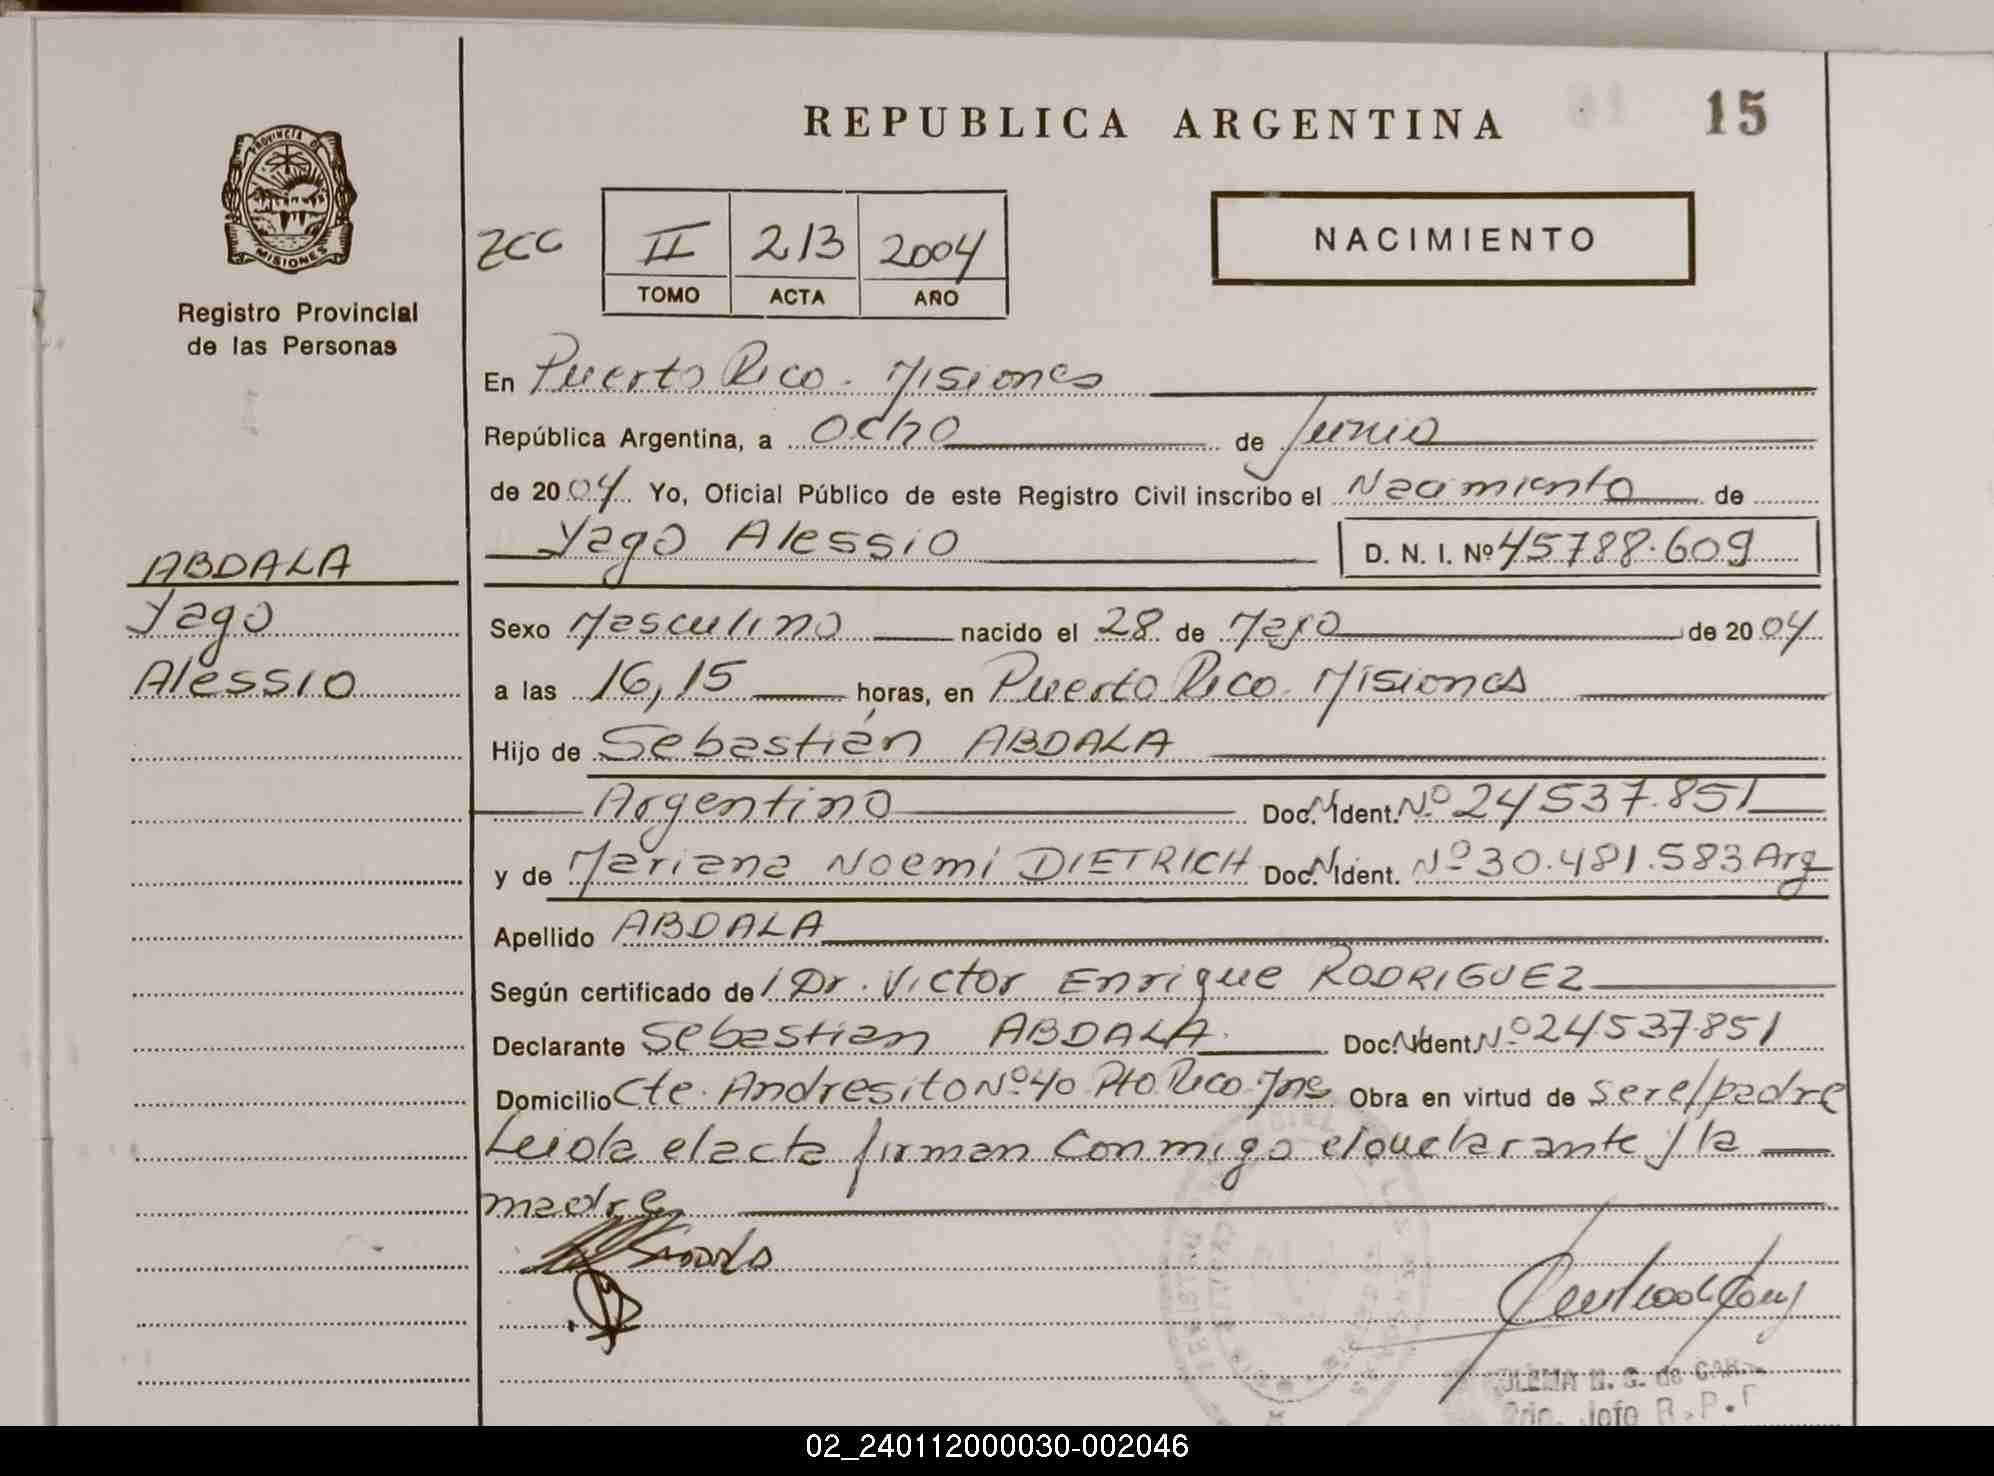 REPUBLICA ARGENTINA
15
PROVINCIA DE
MISIONES
Registro Provincial
de las Personas
ZCC
II 213 2004
TOMO ACTA AÑO
NACIMIENTO
En Puerto Rico - Misiones
República Argentina, a Ocho de Junio
de 2004 Yo, Oficial Público de este Registro Civil inscribo el Nacimiento de
Yago Alessio D. N. I. Nº 45788.609
ABDALA
Yago
Alessio
Sexo Masculino nacido el 28 de Mayo de 2004
a las 16,15 horas, en Puerto Rico. Misiones
Hijo de Sebastián ABDALA
Argentino Doc. N. Ident. Nº 24537.851
y de Mariana Noemi DIETRICH Doc. N. Ident. Nº 30.481.583 Arg
Apellido ABDALA
Según certificado de l Dr. Victor Enrique RODRIGUEZ
Declarante Sebastian ABDALA. Doc. N. Ident. Nº 24537851
Domicilio Cte. Andresito Nº 40 Pto Rico. Mnes Obra en virtud de ser el padre
Leida el acta firman conmigo el declarante y la
madre
M. G. de
Jefe R.P.
02_240112000030-002046